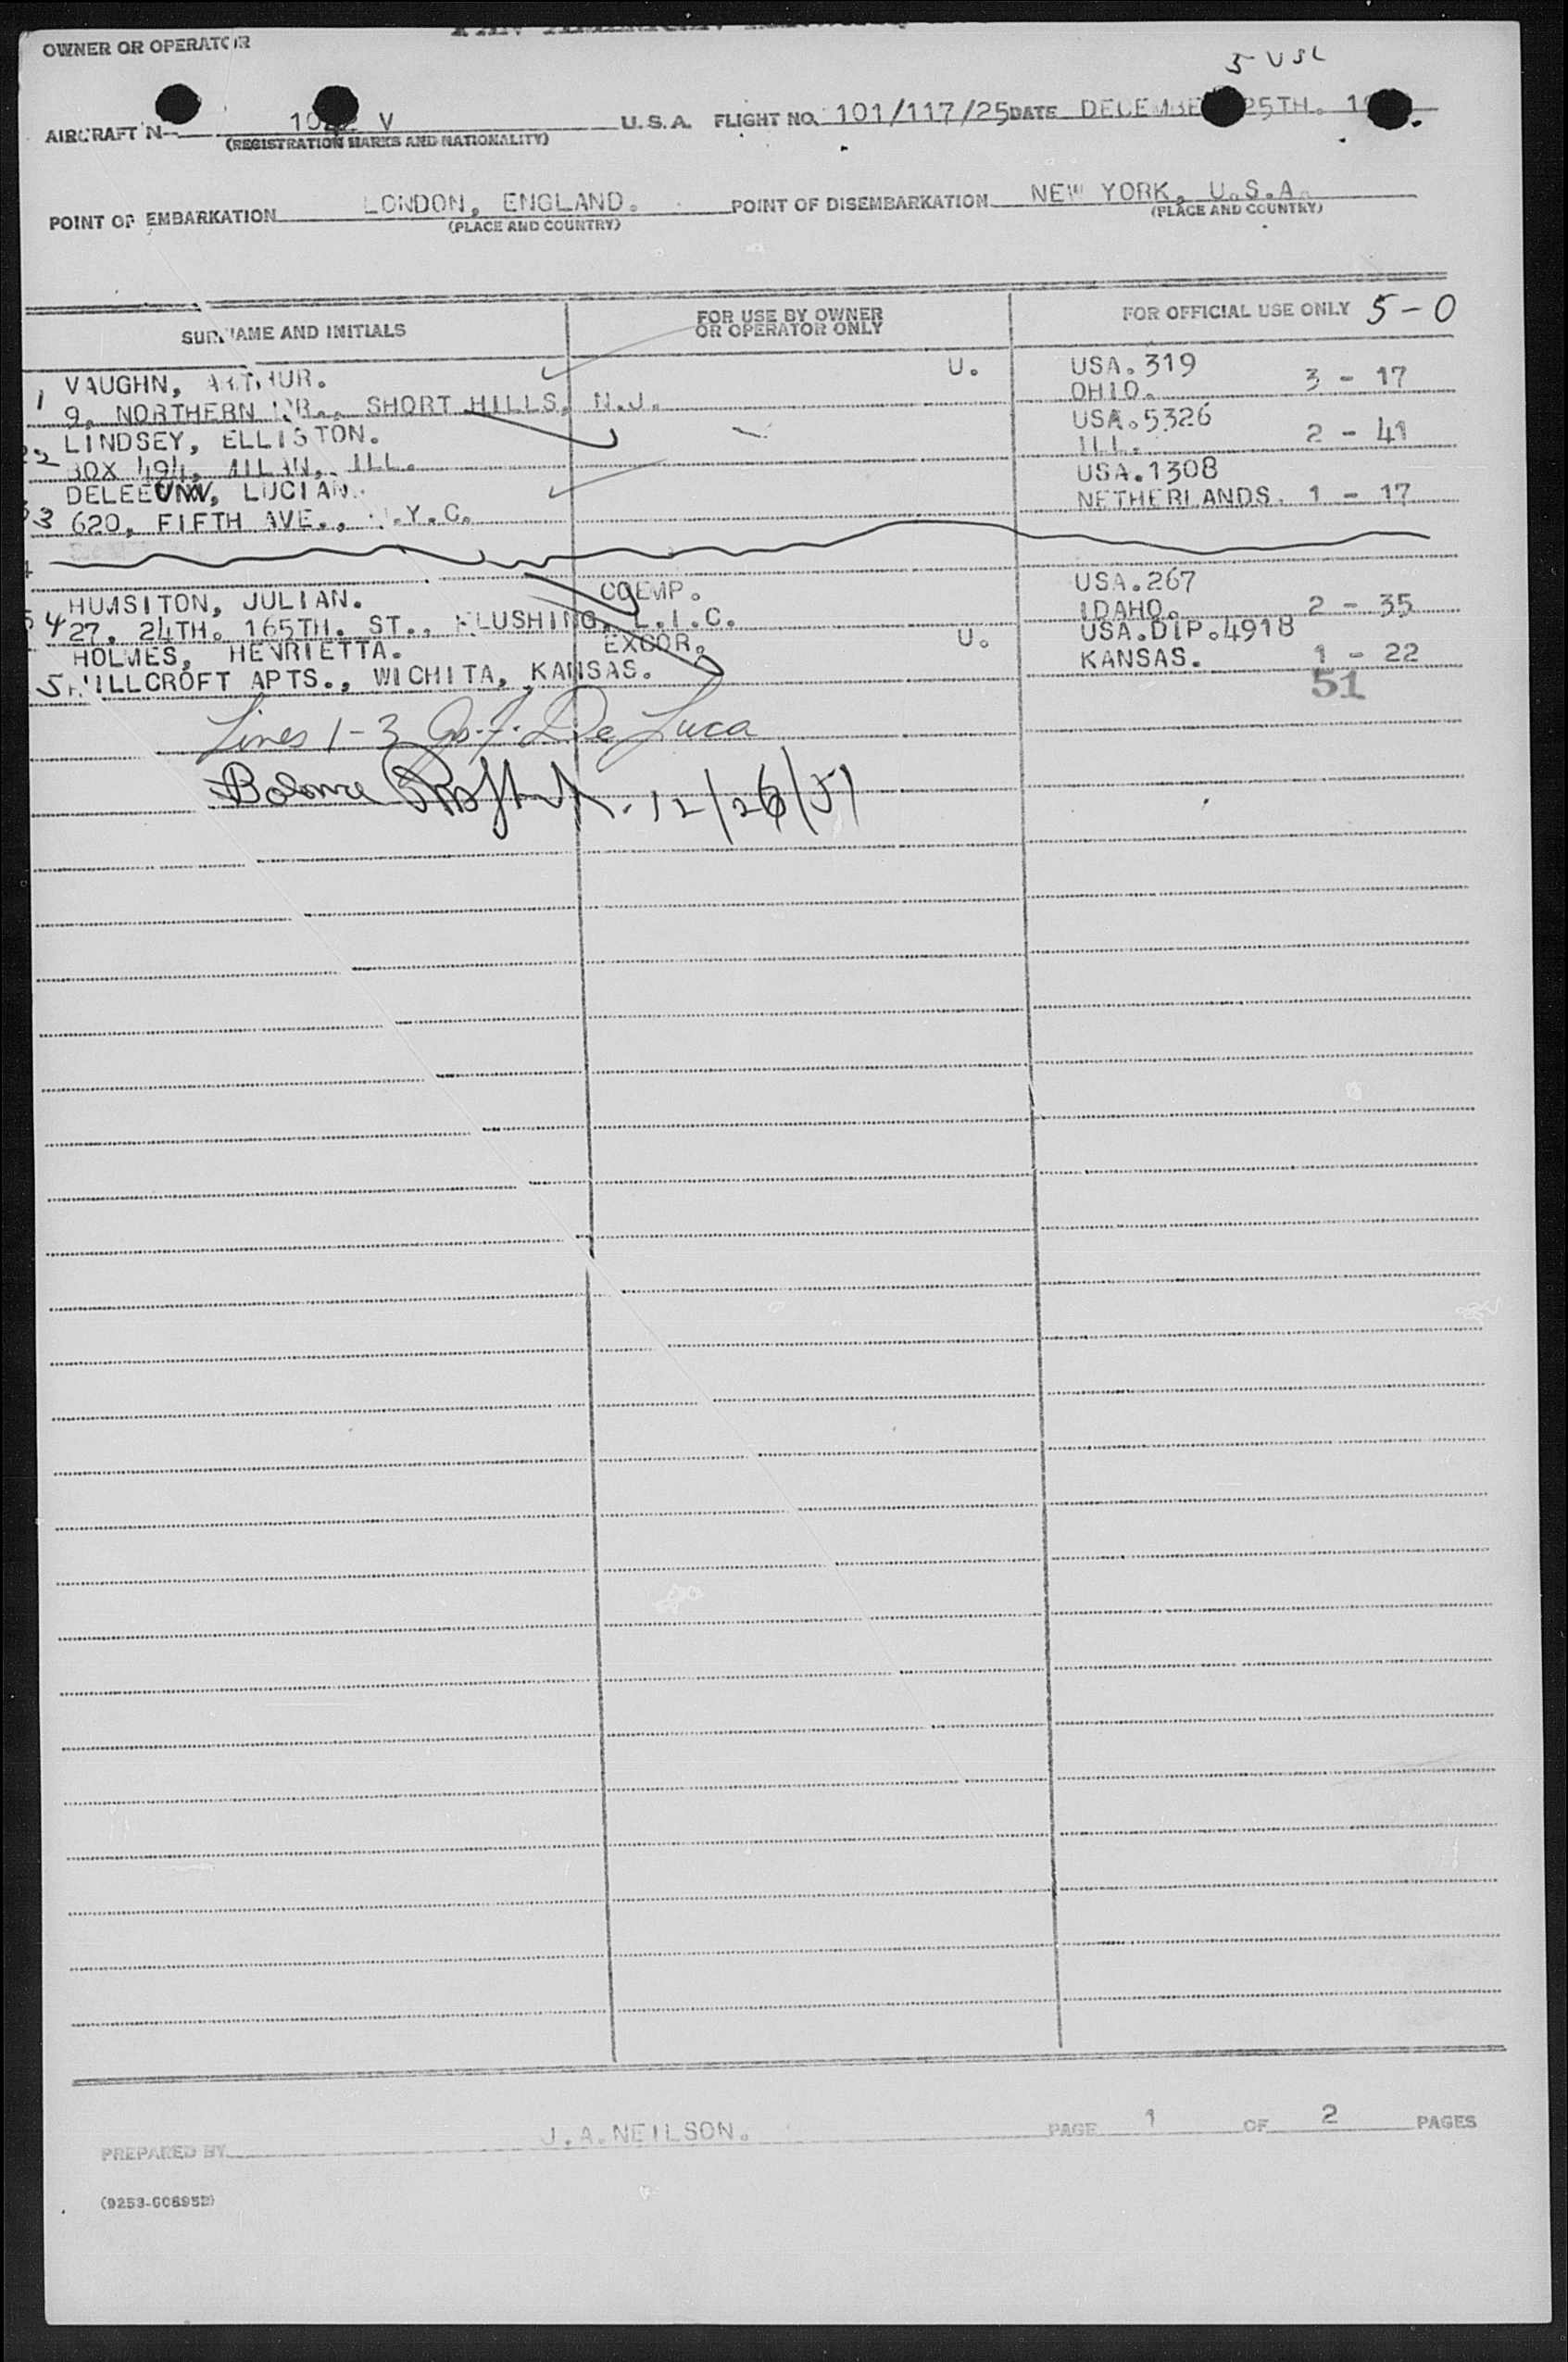 OWNER OR OPERATOR
5 USC
AIRCRAFT N 10 V U.S.A. FLIGHT NO. 101/117/25 DATE DECEMBE 25TH. 1
(REGISTRATION MARKS AND NATIONALITY)
POINT OF EMBARKATION LONDON, ENGLAND. POINT OF DISEMBARKATION NEW YORK, U.S.A.
(PLACE AND COUNTRY) (PLACE AND COUNTRY)
SURNAME AND INITIALS FOR USE BY OWNER OR OPERATOR ONLY FOR OFFICIAL USE ONLY 5-0
1 VAUGHN, ARTHUR. U. USA.319
9, NORTHERN DR., SHORT HILLS, N.J. OHIO. 3 - 17
LINDSEY, ELLISTON. USA.5326
2 BOX 494, MILAN, ILL. ILL. 2 - 41
LUCIAN. USA.1308
3 620, FIFTH AVE., N.Y.C. NETHERLANDS. 1 - 17
HUMSITON, JULIAN. COEMP. USA.267
4 27, 24TH. 165TH. ST., FLUSHING, L.I.C. IDAHO. 2 - 35
HOLMES, HENRIETTA. EXCOR. U. USA.DIP.4918
5 HILLCROFT APTS., WICHITA, KANSAS. KANSAS. 1 - 22
51
Lines 1-3 De Luca
12/26/51
PREPARED BY J.A.NEILSON. PAGE 1 OF 2 PAGES